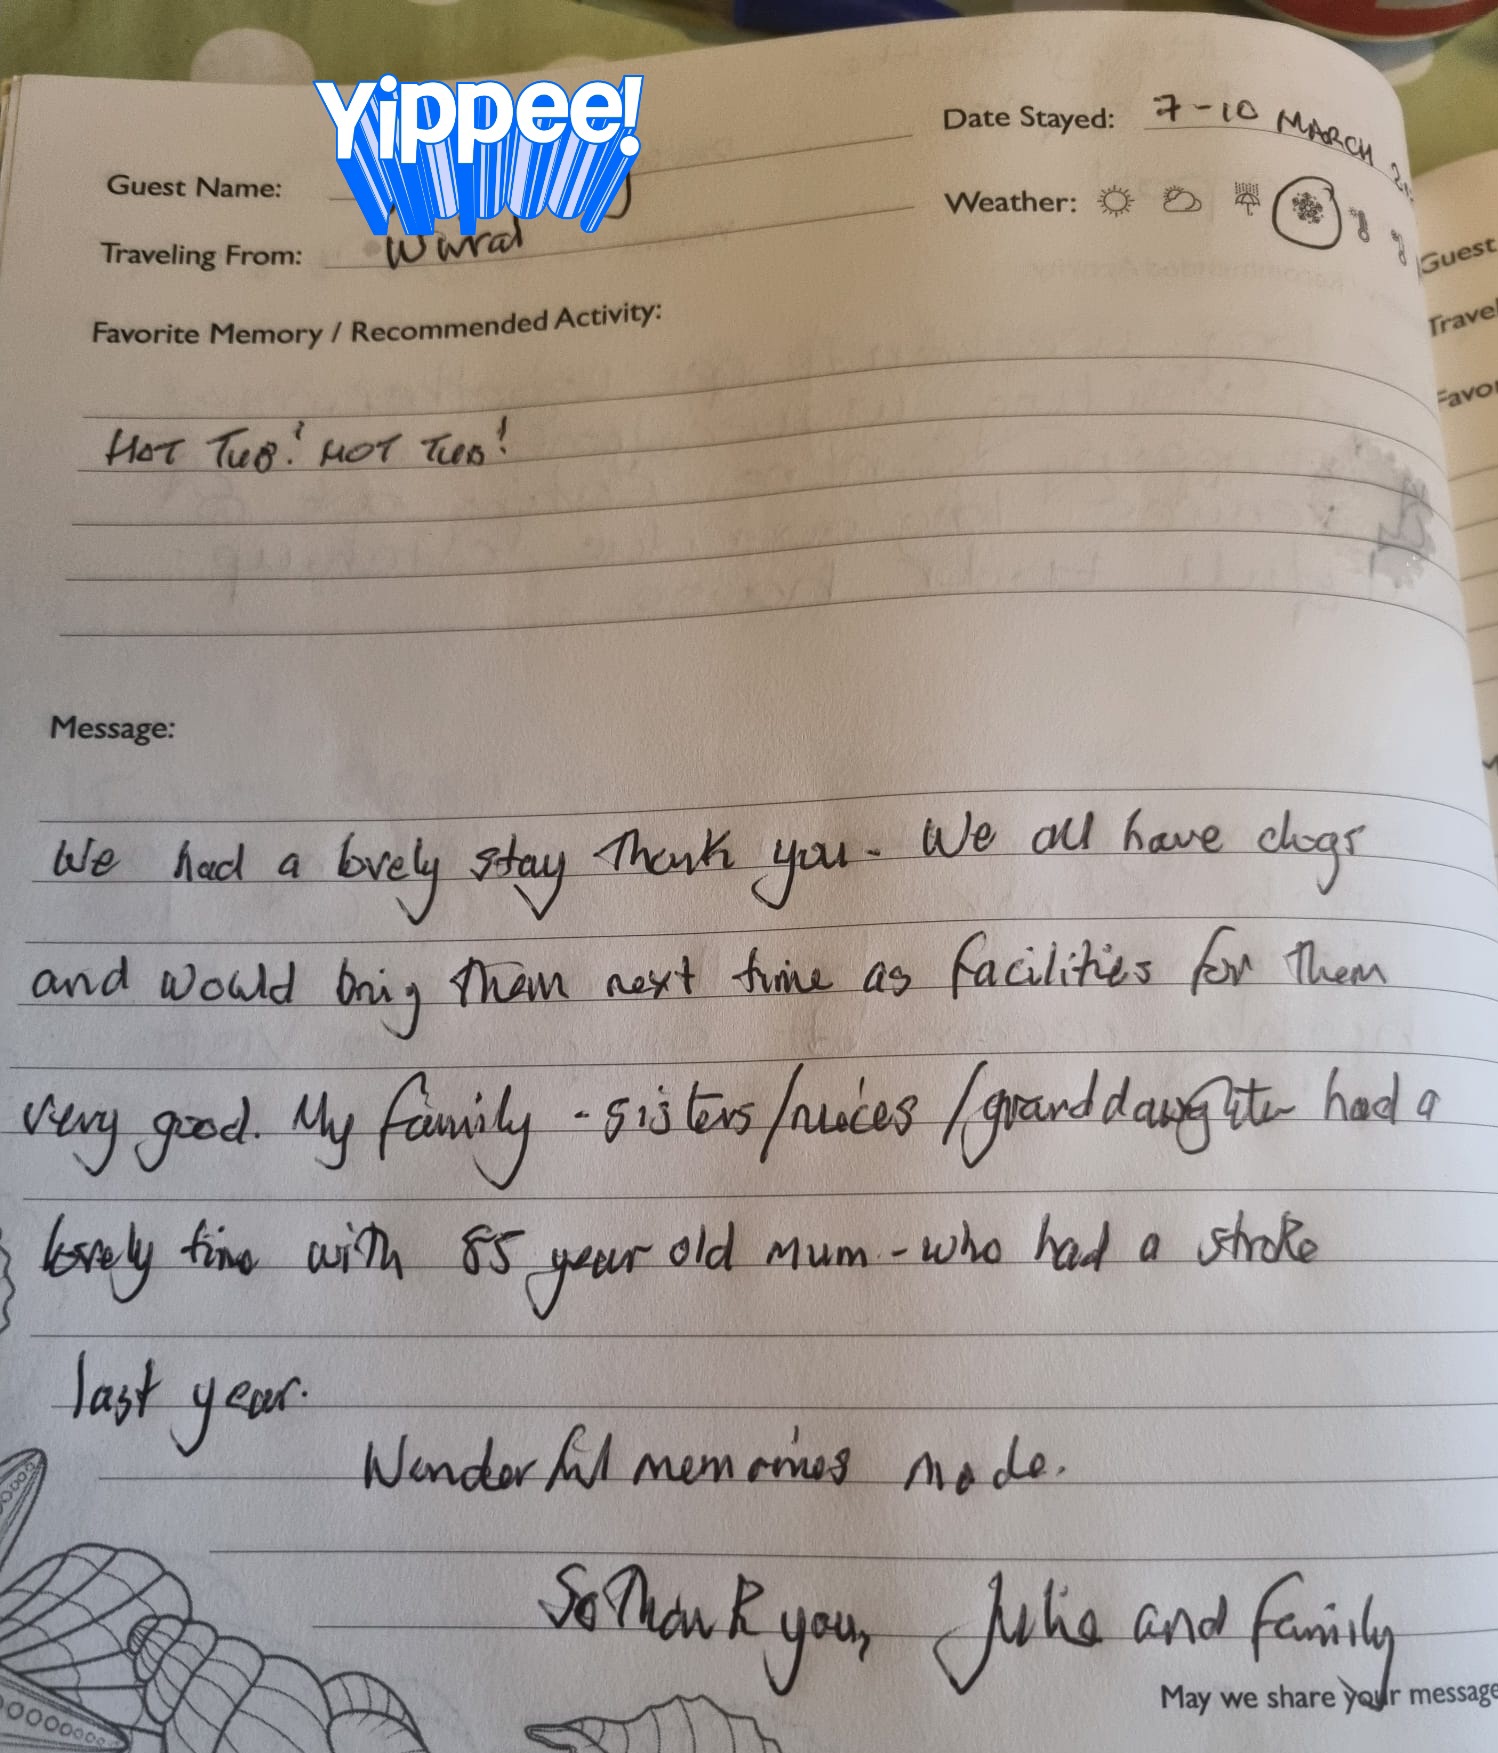 Yippee!
Date Stayed: 7-10 MARCH
Guest Name:
Weather:
Traveling From: Wirral
Favorite Memory / Recommended Activity:
HOT TUB! HOT TUB!
Message:
We had a lovely stay Thank you - We all have dogs
and would bring them next time as facilities for them
very good. My family - sisters/nieces/granddaughter had a
lovely time with 85 year old mum - who had a stroke
last year.
Wonderful memories made.
So Thank you, Julie and family
May we share your message
Guest
Travel
Favor